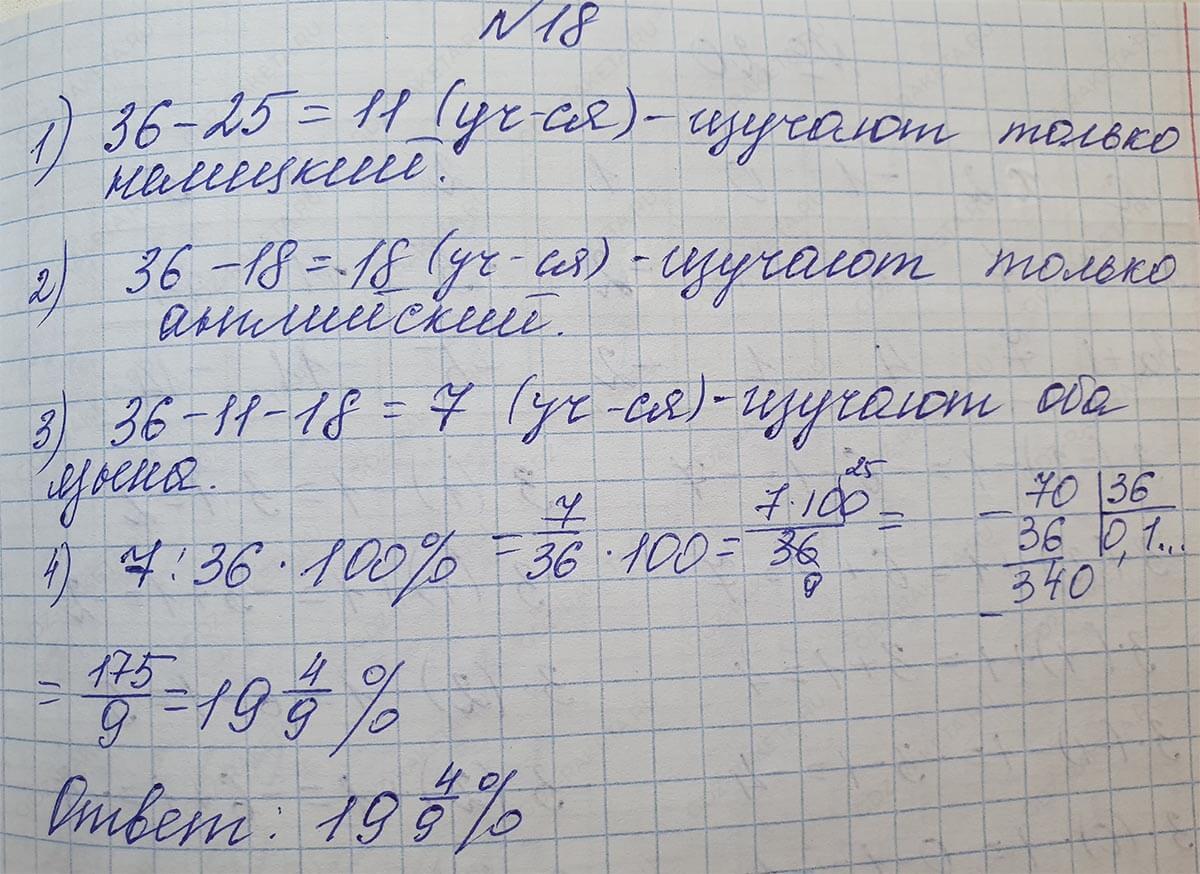 №18
1) 36-25=11 (уч-ся)-изучают только
немецкий.
2) 36-18=18 (уч-ся)-изучают только
английский.
3) 36-11-18=7 (уч-ся)-изучают оба
языка.
4) 7:36·100% = 7/36 ·100= 7·100/36 =
25
9
70 36
36 0,1...
340
= 175/9 =19 4/9 %
Ответ: 19 4/9 %